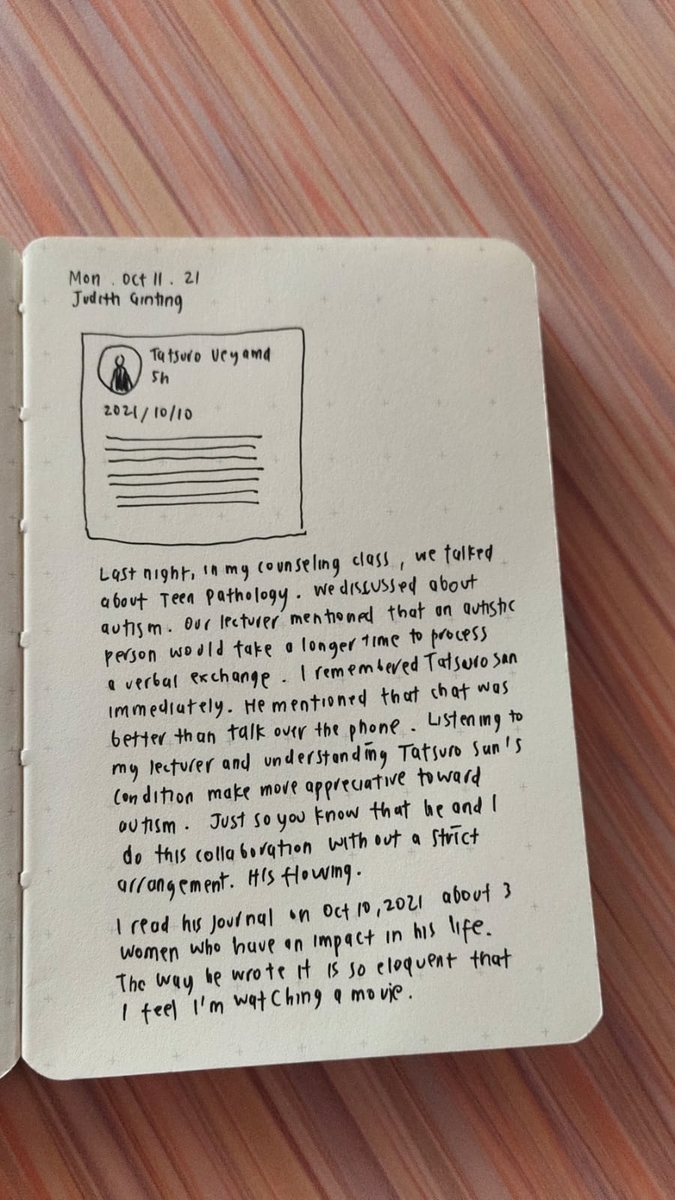 Mon. Oct 11. 21
Judith Ginting
Tatsuro Ueyama
5h
2021/10/10
Last night, in my counseling class, we talked
about Teen pathology. We discussed about
autism. Our lecturer mentioned that an autistic
person would take a longer time to process
a verbal exchange. I remembered Tatsuro san
immediately. He mentioned that chat was
better than talk over the phone. Listening to
my lecturer and understanding Tatsuro san's
condition make more appreciative toward
autism. Just so you know that he and I
do this collaboration without a strict
arrangement. His flowing.
I read his journal on Oct 10, 2021 about 3
women who have an impact in his life.
The way he wrote it is so eloquent that
I feel I'm watching a movie.